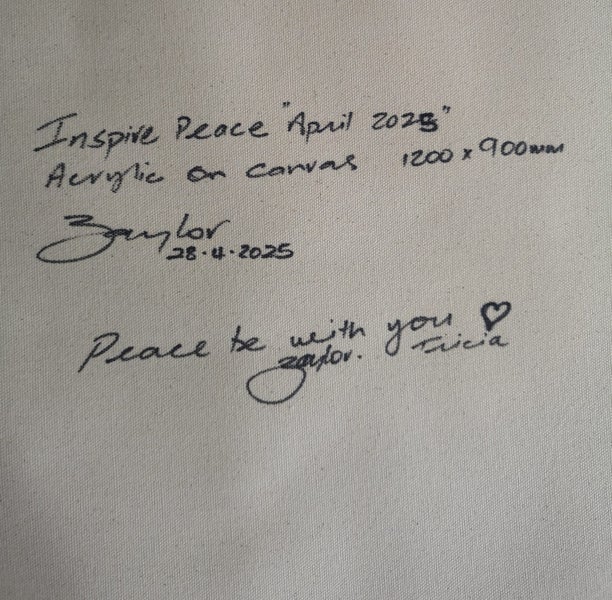 Inspire Peace "April 2025"
Acrylic on canvas 1200 x 900mm
Zaylor
28.4.2025
Peace be with you ♡
Zaylor. Tricia